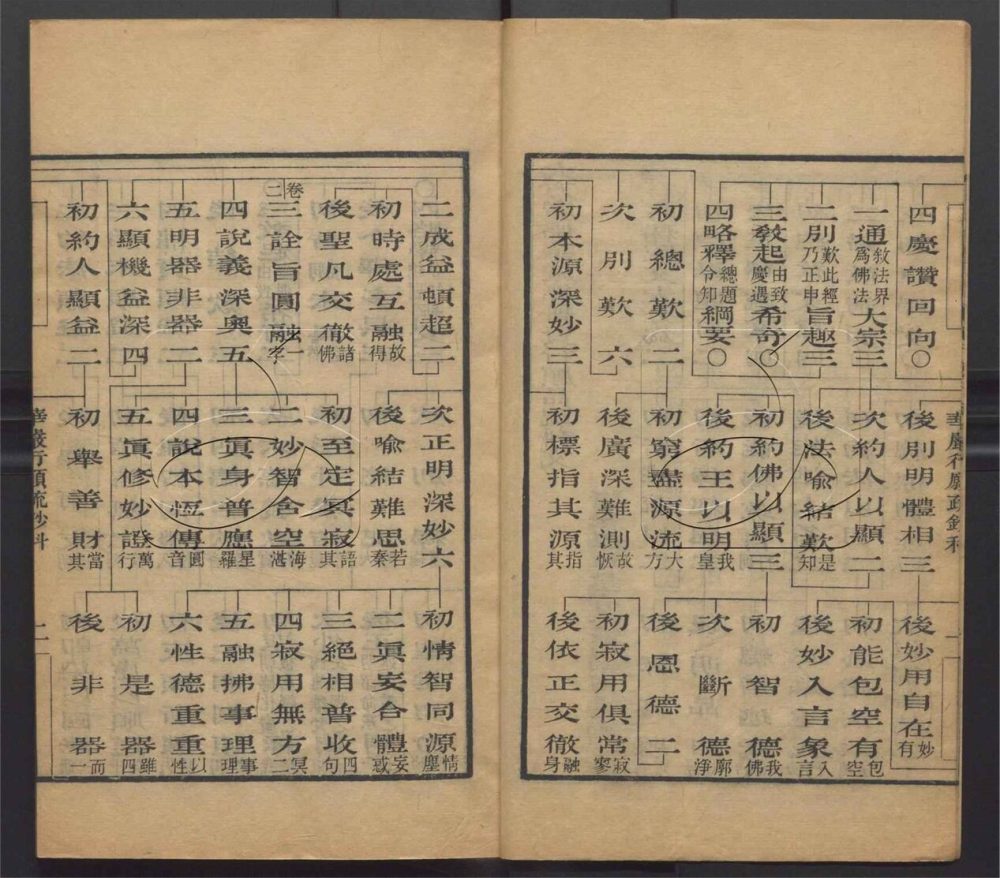 四慶讚回向〇
一通敘法界為佛法大宗三
二別歎此經乃正申旨趣三
三教起由致慶遇希奇〇
四略釋總題令知綱要〇
初總歎二
次別歎六
初本源深妙三
後別明體相三
次約人以顯二
後法喻結歎是知
初約佛以顯三
後約王以明我皇
初窮盡源流大方
後廣深難測故恢
初標指其源指其
後妙用自在妙有
初能包空有包空
後妙入言象入言
初智德我佛
次斷德廓淨
後恩德二
初寂用俱常寂寥
後依正交徹融身
二成益頓超二
初時處互融故得
後聖凡交徹諸佛
卷二
三詮旨圓融一字
四說義深奧五
五明器非器二
六顯機益深四
初約人顯益二
次正明深妙六
後喻結難思若秦
初至定冥寂語其
二妙智含空海湛
三眞身普應星羅
四說本恆傳圓音
五眞修妙證萬行
初舉善財當其
初情智同源情塵
二眞妄合體妄惑
三絕相普收四句
四寂用無方冥二
五融拂事理事理
六性德重重以性
初是器雖四
後非器而一
二